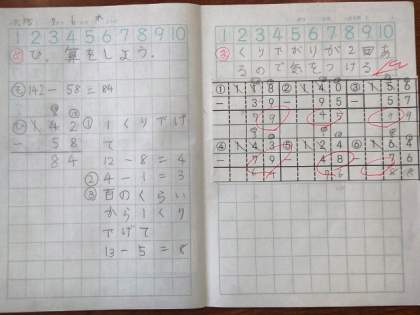 1 2 3 4 5 6 7 8 9 10
め ひっ算をしよう.
も 142-58=84
ひ 1 4 2
- 5 8
8 4
① 1くり下げ
て
12-8=4
② 4-1=3
③ 百のくらい
から1くり
下げて
13-5=8
1 2 3 4 5 6 7 8 9 10
くり下がりが2回あ
るので気をつける
① 1 1 8 ② 1 4 0 ③ 1 5 6
- 3 9 - 9 5 - 5 7
7 9 4 5 9 9
④ 1 4 3 ⑤ 1 2 4 ⑥ 1 6 4
- 7 9 - 4 8 - 7 6
6 4 7 6 8 8